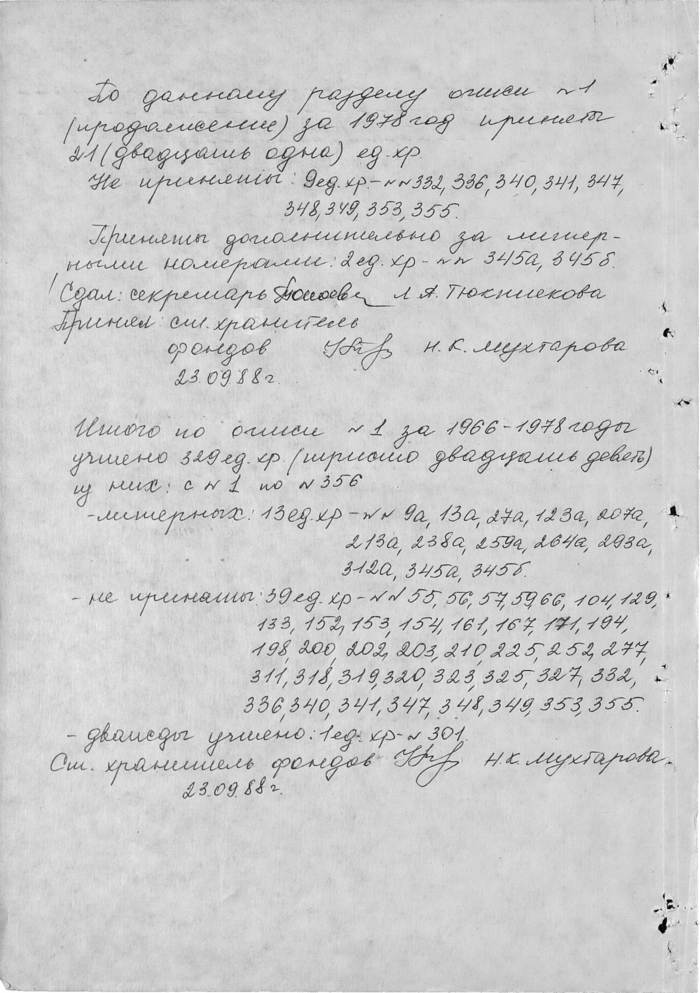 По данному разделу описи №1
(продолжение) за 1978 год приняты
21 (двадцать одна) ед.хр.
Не приняты: 9ед.хр-№№332, 336, 340, 341, 347,
348, 349, 353, 355.
Приняты дополнительно за литер-
ными номерами: 2ед.хр-№№ 345а, 345б.
Сдал: секретарь Л.А. Тюкпиекова
Принял: ст. хранитель
фондов Н.К. Мухтарова
23.09.88г.
Итого по описи №1 за 1966-1978 годы
учтено 329ед.хр. (триста двадцать девять)
из них: с №1 по №356
-литерных: 13ед.хр-№№ 9а, 13а, 27а, 123а, 207а,
213а, 238а, 259а, 264а, 293а,
312а, 345а, 345б.
- не приняты: 39ед.хр-№№55, 56, 57, 59, 66, 104, 129,
133, 152, 153, 154, 161, 167, 171, 194,
198, 200, 202, 203, 210, 225, 252, 277,
311, 318, 319, 320, 323, 325, 327, 332,
336, 340, 341, 347, 348, 349, 353, 355.
- дважды учтено: 1ед.хр-№301.
Ст. хранитель фондов Н.К. Мухтарова.
23.09.88г.